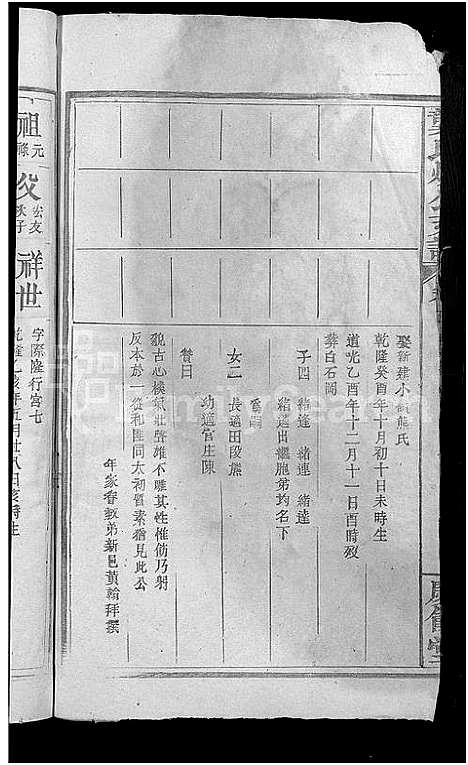 娶新建小嶺熊氏
乾隆癸酉年十月初十日未時生
道光乙酉年十二月十一日酉時歿
葬白石岡
子四 緒逢 緒連 緒達
緒 出繼胞弟均名下
女二 長適田段熊
幼適官庄陳
贊曰
貌古心樸氣壯聲雄不雕其性惟飭乃躬
反本於一從和匪同太初質素猶見此公
年家眷教弟新邑黃翰拜撰
祖 元祿
父 次子
祥世
字際隆行宮七
乾隆乙亥年五月廿八日亥時生